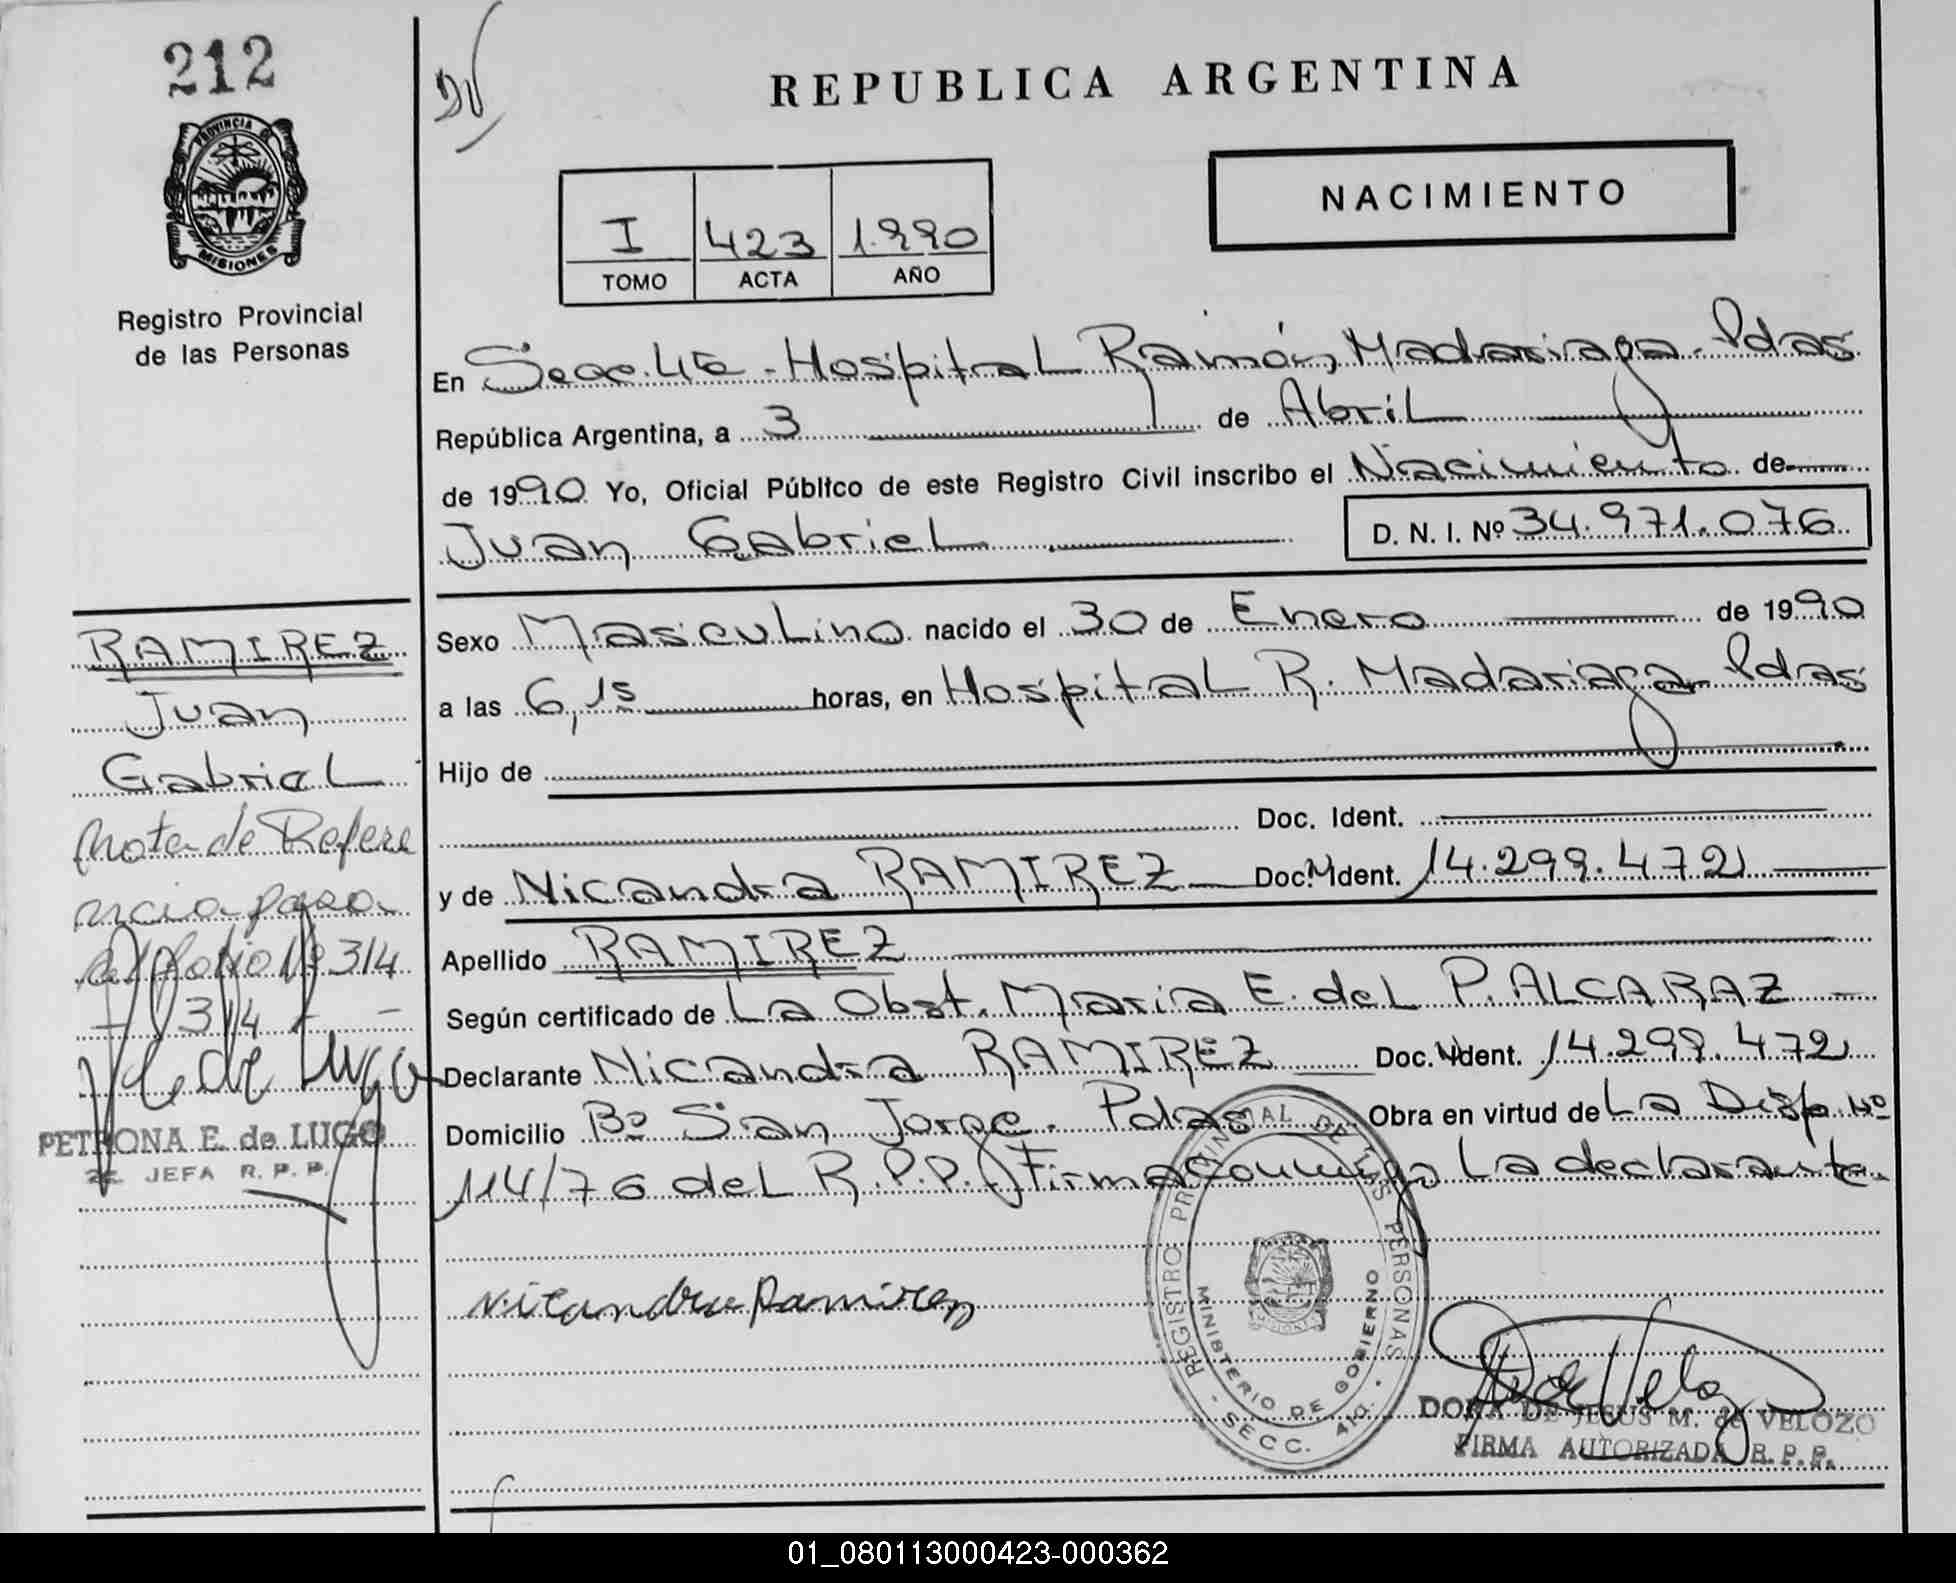 212
PROVINCIA DE
MISIONES
Registro Provincial
de las Personas
REPUBLICA ARGENTINA
NACIMIENTO
I 423 1.990
TOMO ACTA AÑO
En Secc. 4ta - Hospital Ramón Madariaga - Pdas
República Argentina, a 3 de Abril
de 1990 Yo, Oficial Público de este Registro Civil inscribo el Nacimiento de
Juan Gabriel D. N. I. Nº 34.971.076
Sexo Masculino nacido el 30 de Enero de 1990
a las 6,15 horas, en Hospital R. Madariaga Pdas
Hijo de
Doc. Ident.
y de Nicandra RAMIREZ Doc. Ident. 14.299.472
Apellido RAMIREZ
Según certificado de La Obst. Maria E. del P. ALCARAZ
Declarante Nicandra RAMIREZ Doc. Ident. 14.299.472
Domicilio Bº San Jorge. Pdas Obra en virtud de La Disp. Nº
114/76 del R.P.P. Firma conmigo La declarante.
Nicandra Ramirez
REGISTRO PROVINCIAL DE LAS PERSONAS
MINISTERIO DE GOBIERNO
SECC. 4ta.
DORA DE JESUS M. de VELOZO
FIRMA AUTORIZADA R.P.P.
RAMIREZ
Juan
Gabriel
Nota de Refere
ncia pasa
al folio Nº 314
- 314 -
PETRONA E. de LUGO
JEFA R.P.P.
01_080113000423-000362